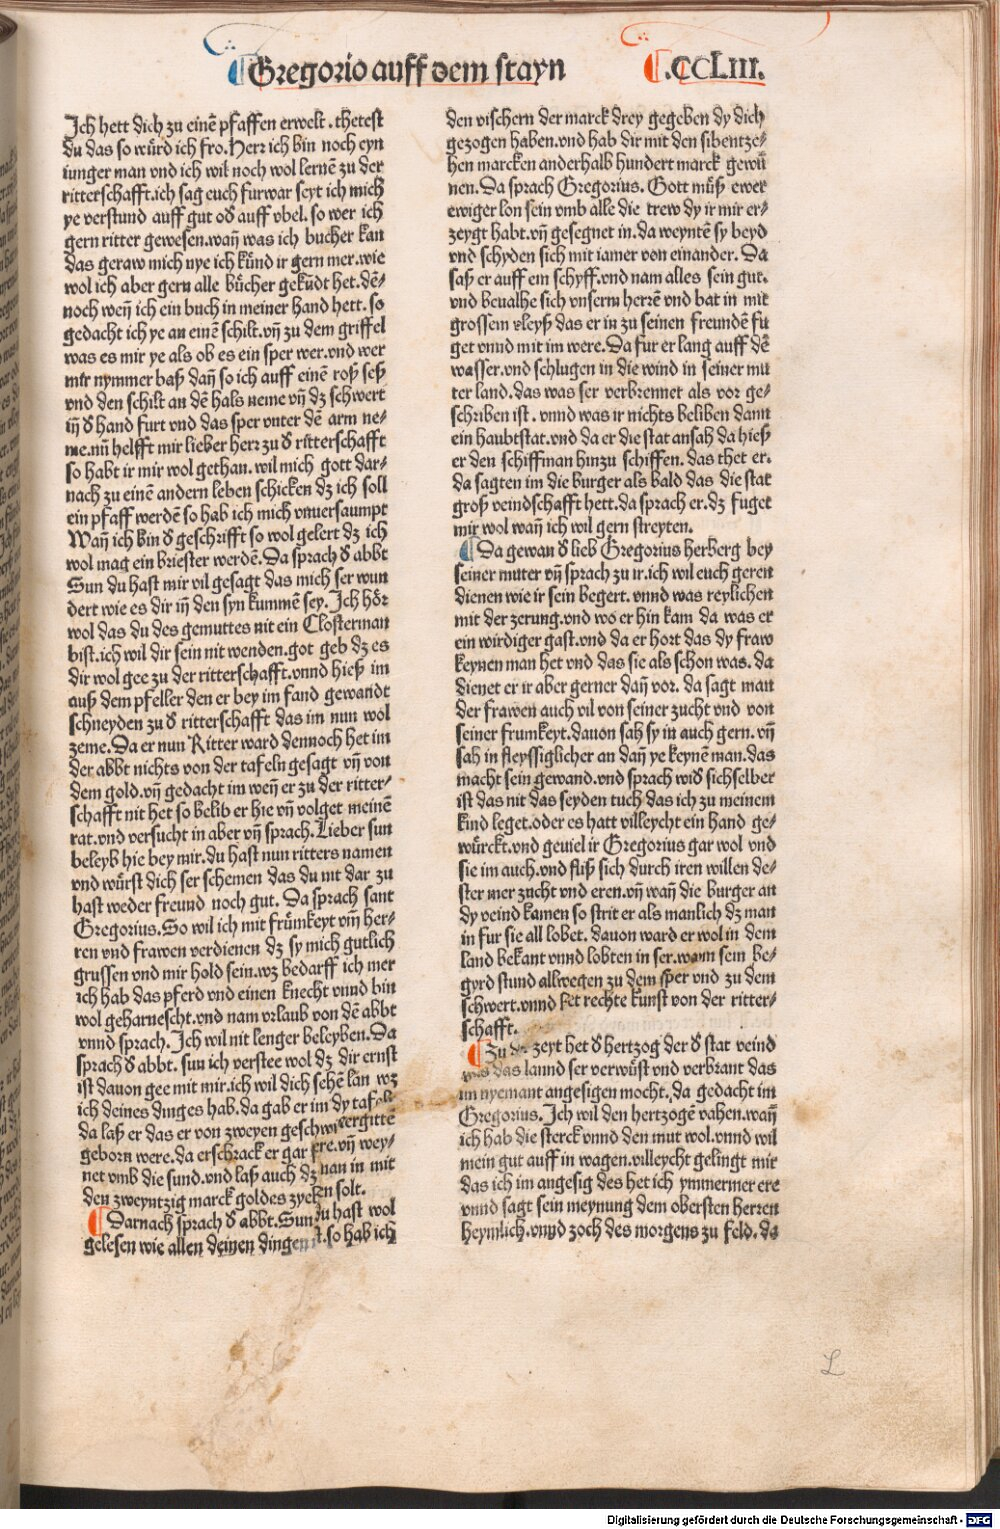 Gregorio auff dem stayn
.CCLIII.
Ich hett dich zu einē pfaffen erwelt . thetest
du das so wůrd ich fro. Herr ich bin noch eyn
iunger man vnd ich wil noch wol lernē zu der
ritterschafft.ich sag euch furwar seyt ich mich
ye verstund auff gut oď auff vbel. so wer ich
gern ritter gewesen.wañ was ich bucher kan
das geraw mich nye ich kůnd ir gern mer.wie
wol ich aber gern alle bůcher gekůdt het.dē-
noch weñ ich ein buch in meiner hand hett. so
gedacht ich ye an einē schilt.vñ zu dem griffel
was es mir ye als ob es ein sper wer.vnd wer
mir nymmer baß dañ so ich auff einē roß seß
vnd den schilt an dē hals neme vñ dz schwert
iñ ď hand furt vnd das sper vnter dē arm ne-
me.nū helfft mir lieber herr zu ď ritterschafft
so habt ir mir wol gethan. wil mich gott dar-
nach zu einē andern leben schicken dz ich soll
ein pfaff werdē so hab ich mich vnuersaumpt
Wañ ich bin ď geschrifft so wol gelert dz ich
wol mag ein briester werdē. Da sprach ď abbt
Sun du hast mir vil gesagt das mich ser wun
dert wie es dir iñ den syn kummē sey. Ich hőr
wol das du des gemuttes nit ein Closterman
bist.ich wil dir sein nit wenden.got geb dz es
dir wol gee zu der ritterschafft.vnnd hieß im
auß dem pfeller den er bey im fand gewandt
schneyden zu ď ritterschafft das im nun wol
zeme. Da er nun Ritter ward dennoch het im
der abbt nichts von der tafeln gesagt vñ von
dem gold.vñ gedacht im weñ er zu der ritter-
schafft nit het so belib er hie vñ volget meinē
rat.vnd versucht in aber vñ sprach. Lieber sun
beleyb hie bey mir.du hast nun ritters namen
vnd wůrst dich ser schemen das du nit dar zu
hast weder freund noch gut. Da sprach sant
Gregorius. So wil ich mit frůmkeyt vñ her-
ren vnd frawen verdienen dz sy mich gutlich
grussen vnd mir hold sein.wz bedarff ich mer
ich hab das pferd vnd einen knecht vnnd bin
wol geharnescht.vnd nam vrlaub von dē abbt
vnnd sprach. Ich wil nit lenger beleyben. Da
sprach ď abbt. sun ich verstee wol dz dir ernst
ist dauon gee mit mir.ich wil dich schē lan wz
ich deines dinges hab.da gab er im dy tafel
da laß er das er von zweyen geschwi
geborn were.da erschrack er gar vñ wey-
net vmb die sund.vnd laß auch dz man in mit
den zweyntzig marck goldes zyehen solt.
Darnach sprach ď abbt. Sun du hast wol
gelesen wie allen deinen dingen ist.so hab ich
den vischern der marck drey gegeben dy dich
gezogen haben.vnd hab dir mit den sibentze-
hen marcken anderhalb hundert marck gewů
nen. Da sprach Gregorius. Gott můß ewer
ewiger lon sein vmb alle die trew dy ir mir er-
zeygt habt.vñ gesegnet in.da weyntē sy beyd
vnd schyden sich mit iamer von einander. Da
saß er auff ein schyff.vnd nam alles sein gut.
vnd beualhe sich vnserm herrē vnd bat in mit
grossem vleyß das er in zu seinen freundē fu
get vnnd mit im were. Da fur er lang auff dē
wasser.vnd schlugen in die wind in seiner mu
ter land.das was ser verbrennet als vor ge-
schriben ist . vnnd was ir nichts beliben dann
ein haubtstat.vnd da er die stat ansah da hieß
er den schiffman hinzu schiffen. das thet er.
da sagten im die burger als bald das die stat
groß veindschafft hett.da sprach er.dz fuget
mir wol wañ ich wil gern streyten.
Da gewan ď lieb Gregorius herberg bey
seiner muter vñ sprach zu ir.ich wil euch geren
dienen wie ir sein begert. vnnd was reylichen
mit der zerung.vnd wo er hin kam da was er
ein wirdiger gast.vnd da er hort das dy fraw
keynen man het vnd das sie als schon was. da
dienet er ir aber gerner dañ vor. da sagt man
der frawen auch vil von seiner zucht vnd von
seiner frumkeyt.dauon sah sy in auch gern. vñ
sah in fleyssiglicher an dañ ye keynē man.das
macht sein gewand.vnd sprach wiď sichselber
ist das nit das seyden tuch das ich zu meinem
kind leget.oder es hatt villeycht ein hand ge-
wůrckt.vnd geuiel ir Gregorius gar wol vnd
sie im auch.vnd fliß sich durch iren willen de-
ster mer zucht vnd eren.vñ wañ die burger an
dy veind kamen so strit er als manlich dz man
in fur sie all lobet. dauon ward er wol in dem
land bekant vnnd lobten in ser.wann sein be-
gyrd stund allwegen zu dem sper vnd zu dem
schwert.vnnd het rechte kunst von der ritter-
schafft.
Zu der zeyt het ď hertzog der ď stat veind
was das lannd ser verwůst vnd verbrant das
im nyemant angesigen mocht.da gedacht im
Gregorius. Ich wil den hertzogē vahen.wañ
ich hab die sterck vnnd den mut wol.vnnd wil
mein gut auff in wagen.villeycht gelingt mir
das ich im angesig des het ich ymmermer ere
vnnd sagt sein meynung dem obersten herren
heymlich.vnnd zoch des morgens zu feld. da
L
Digitalisierung gefördert durch die Deutsche Forschungsgemeinschaft - DFG